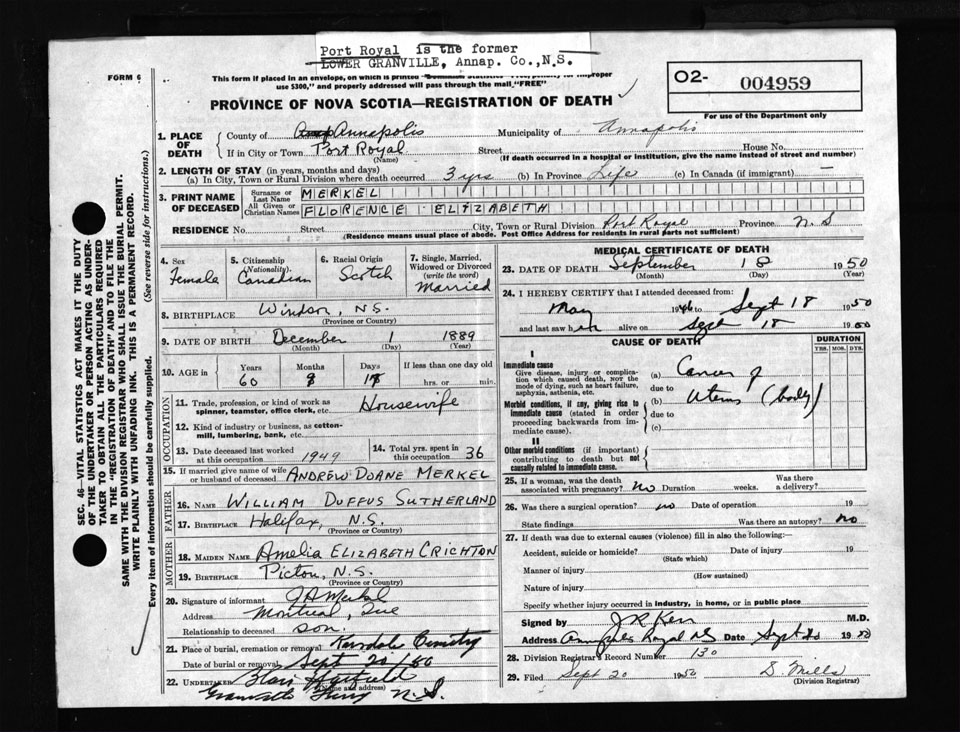 Port Royal is the former
LOWER GRANVILLE, Annap. Co.,N.S.
FORM 6
This form if placed in an envelope, on which is printed for improper
use $300," and properly addressed will pass through the mail "FREE"
O2- 004959
For use of the Department only
PROVINCE OF NOVA SCOTIA—REGISTRATION OF DEATH
1. PLACE OF DEATH
County of Annapolis Municipality of Annapolis
If in City or Town Port Royal Street House No.
(Name) (If death occurred in a hospital or institution, give the name instead of street and number)
2. LENGTH OF STAY (in years, months and days)
(a) In City, Town or Rural Division where death occurred 3 yrs (b) In Province Life (c) In Canada (if immigrant) —
3. PRINT NAME OF DECEASED
Surname or Last Name MERKEL
All Given or Christian Names FLORENCE ELIZABETH
RESIDENCE No. Street City, Town or Rural Division Port Royal Province N.S
(Residence means usual place of abode. Post Office Address for residents in rural parts not sufficient)
4. Sex Female
5. Citizenship (Nationality). Canadian
6. Racial Origin Scotch
7. Single, Married, Widowed or Divorced (write the word) Married
8. BIRTHPLACE Windsor, N.S.
(Province or Country)
9. DATE OF BIRTH December 1 1889
(Month) (Day) (Year)
10. AGE in Years Months Days If less than one day old
60 9 hrs. or min.
OCCUPATION
11. Trade, profession or kind of work as spinner, teamster, office clerk, etc. Housewife
12. Kind of industry or business, as cotton-mill, lumbering, bank, etc.
13. Date deceased last worked at this occupation 1949
14. Total yrs. spent in this occupation 36
15. If married give name of wife or husband of deceased ANDREW DOANE MERKEL
FATHER
16. NAME WILLIAM DUFFUS SUTHERLAND
17. BIRTHPLACE Halifax, N.S.
(Province or Country)
MOTHER
18. MAIDEN NAME Amelia ELIZABETH CRICHTON
19. BIRTHPLACE Pictou, N.S.
(Province or Country)
20. Signature of informant J A Merkel
Address Montreal, Que
Relationship to deceased son.
21. Place of burial, cremation or removal Karsdale Cemetry
Date of burial or removal Sept 20/50
22. Undertaker
(Name and address)
Granville Ferry N.S.
MEDICAL CERTIFICATE OF DEATH
23. DATE OF DEATH September 18 1950
(Month) (Day)
24. I HEREBY CERTIFY that I attended deceased from:
May 19 to Sept 18 1950
and last saw her alive on Sept 18 1950
CAUSE OF DEATH
DURATION
YRS. MOS. DYS.
I
Immediate cause
Give disease, injury or complication which caused death, NOT the mode of dying, such as heart failure, asphyxia, asthenia, etc.
(a) Cancer of
due to
(b) uterus (body)
Morbid conditions, if any, giving rise to immediate cause (stated in order proceeding backwards from immediate cause).
due to
(c)
II
Other morbid conditions (if important) contributing to death but not causally related to immediate cause.
25. If a woman, was the death associated with pregnancy? no Duration weeks. Was there a delivery?
26. Was there a surgical operation? no Date of operation 19
State findings Was there an autopsy? no
27. If death was due to external causes (violence) fill in also the following:—
Accident, suicide or homicide? Date of injury 19
(State which)
Manner of injury
(How sustained)
Nature of injury
Specify whether injury occurred in industry, in home, or in public place
Signed by J R Kerr M.D.
Address Annapolis Royal NS Date Sept 20 1950
28. Division Registrar's Record Number 130
29. Filed Sept 20 1950 S. Mills
(Division Registrar)
SEC. 46—VITAL STATISTICS ACT MAKES IT THE DUTY
OF THE UNDERTAKER OR PERSON ACTING AS UNDER-
TAKER TO OBTAIN ALL THE PARTICULARS REQUIRED
IN THE "REGISTRATION OF DEATH" AND TO FILE THE
SAME WITH THE DIVISION REGISTRAR WHO SHALL ISSUE THE BURIAL PERMIT.
WRITE PLAINLY WITH UNFADING INK. THIS IS A PERMANENT RECORD.
Every item of information should be carefully supplied. (See reverse side for instructions.)